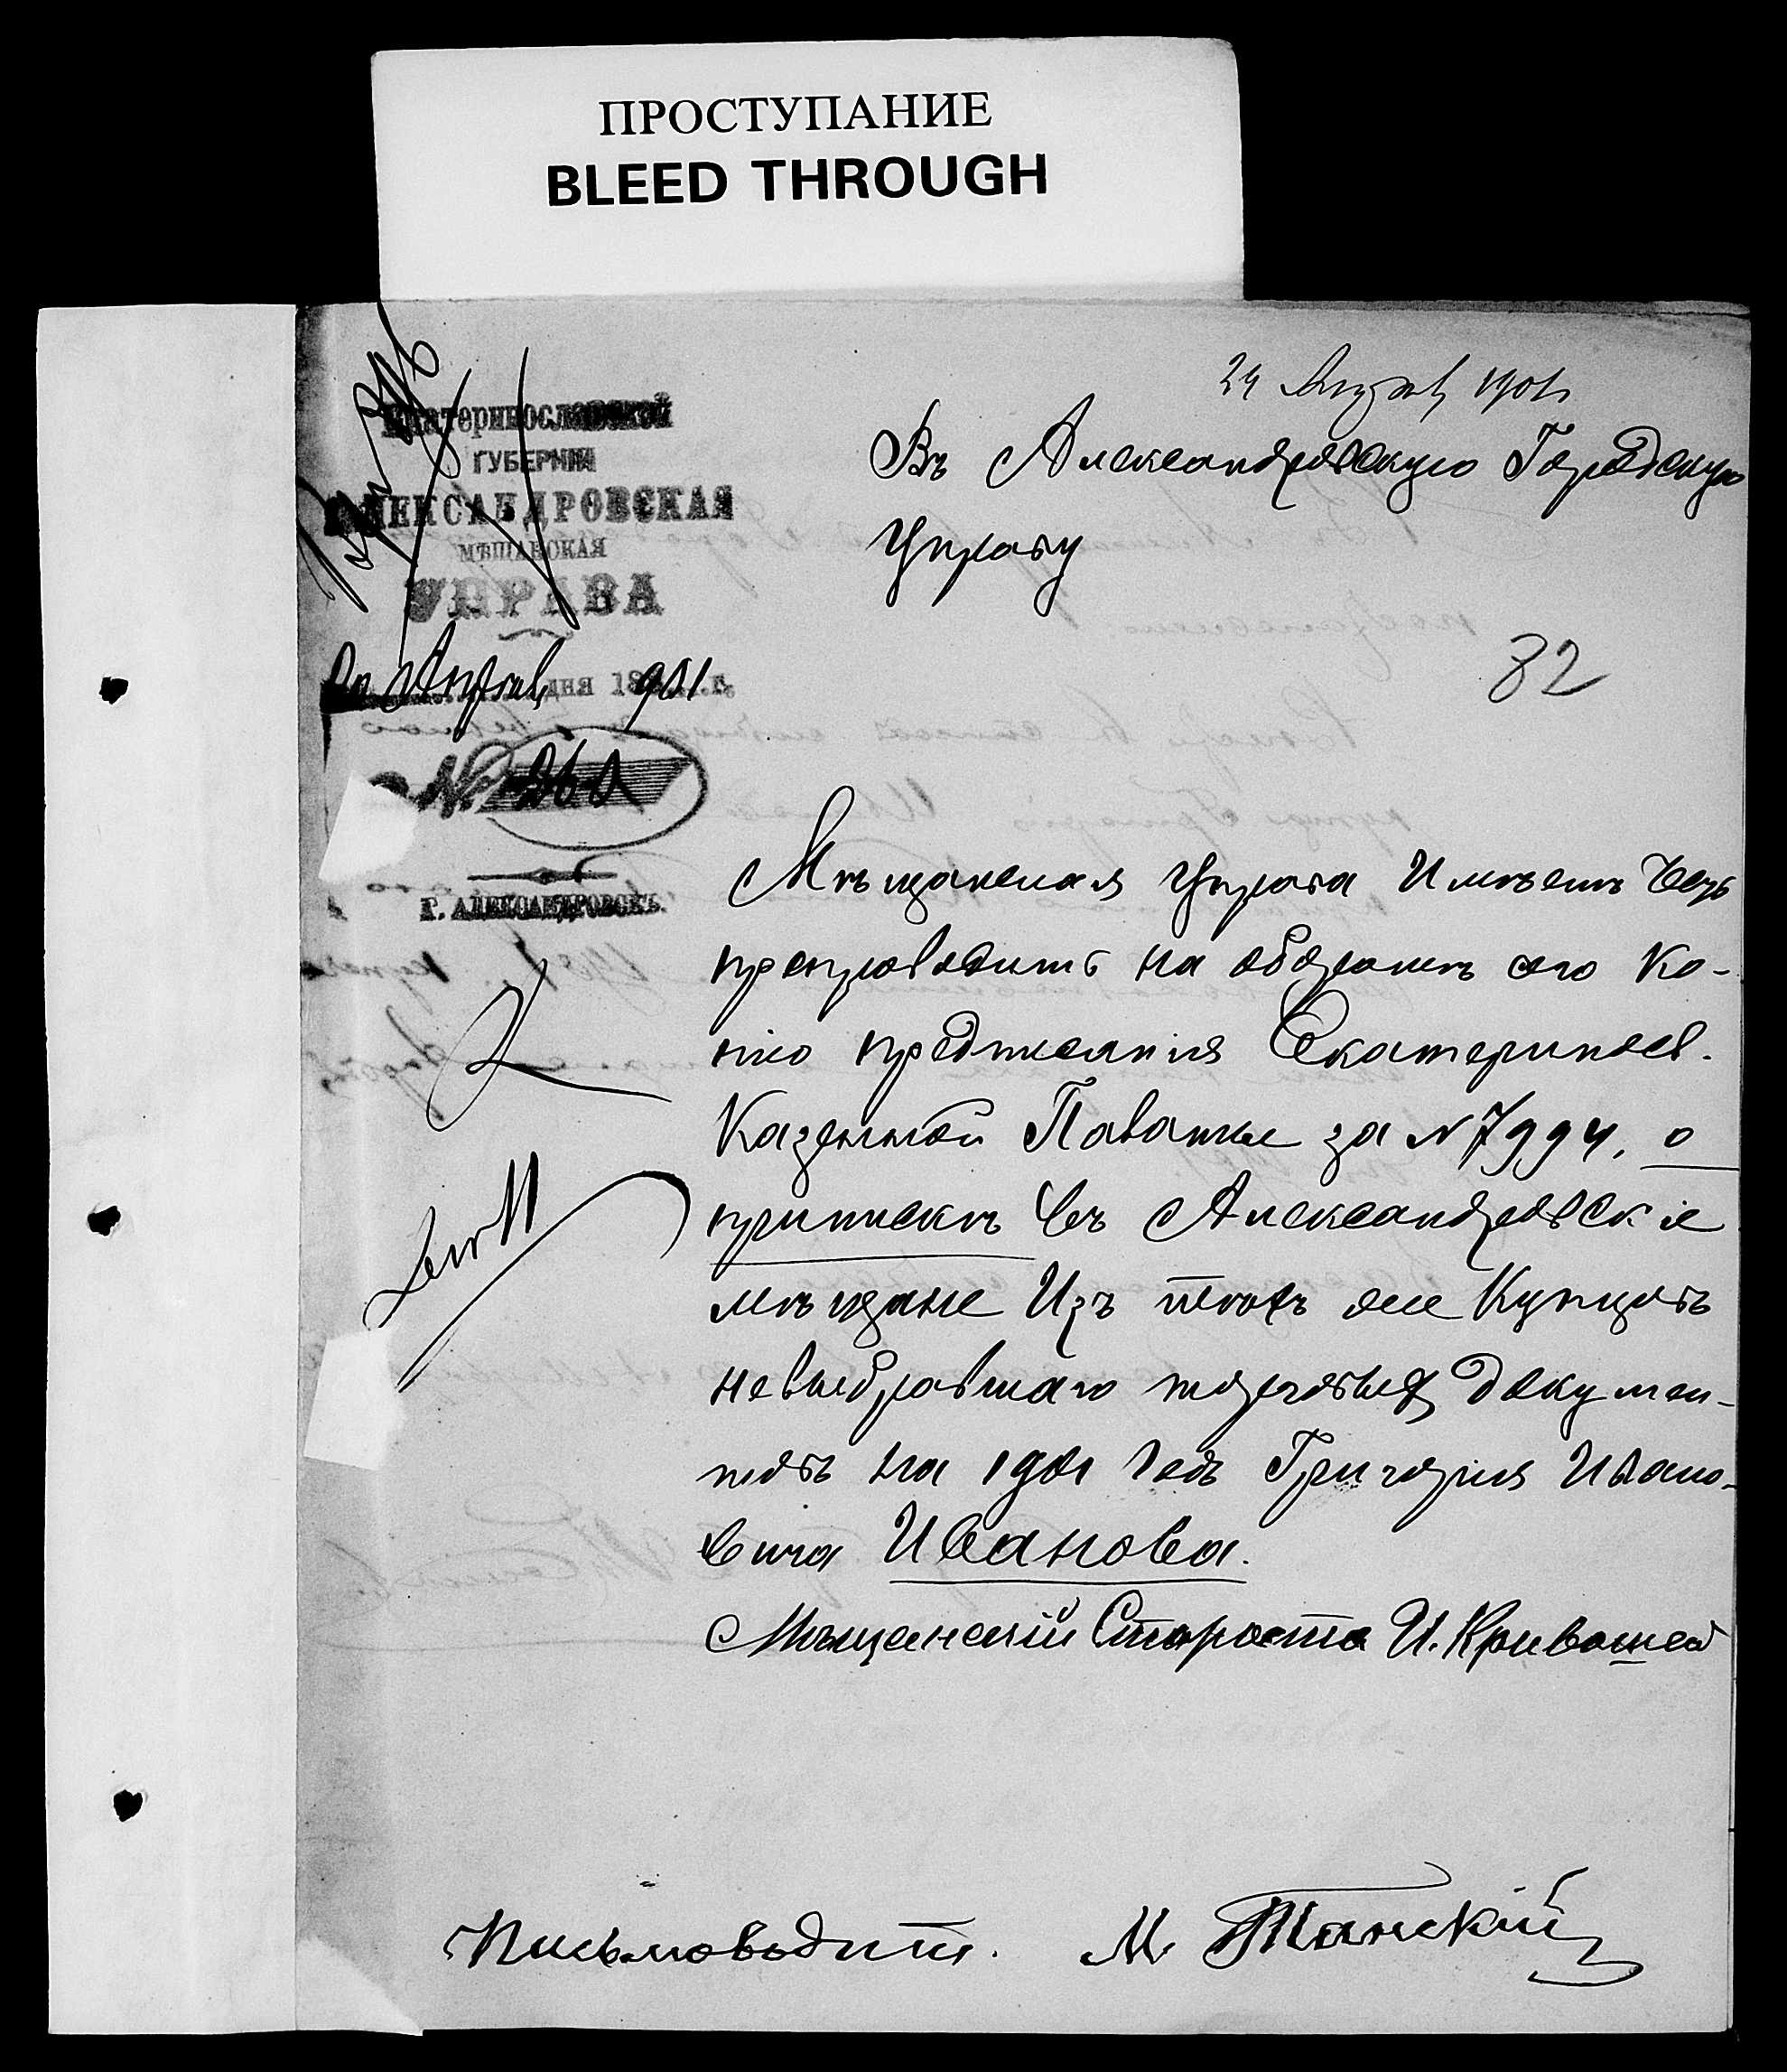 ПРОСТУПАНИЕ
BLEED THROUGH
24 Апрѣл 1901
Екатеринославской
ГУБЕРНІИ
АЛЕКСАНДРОВСКАЯ
МѢЩАНСКАЯ
УПРАВА
Апрѣля дня 18 901 г.
№ 262
Г. АЛЕКСАНДРОВСКЪ.
Въ Александровскую Городскую
Управу
82
Мѣщанская Управа Имѣетъ Честь
препроводить на оборотѣ сего Ко-
пію предписанія Екатериносл.
Казенной Палаты за № 7994, о
припискѣ въ Александровскіе
мѣщане Изъ тѣхъ же Купцовъ
невыбравшаго торговыхъ докумен-
товъ на 1901 годъ Григорія Ивано-
вича Иванова.
Мѣщанскій Староста И. Кривошей
Письмоводит. М. Танскій